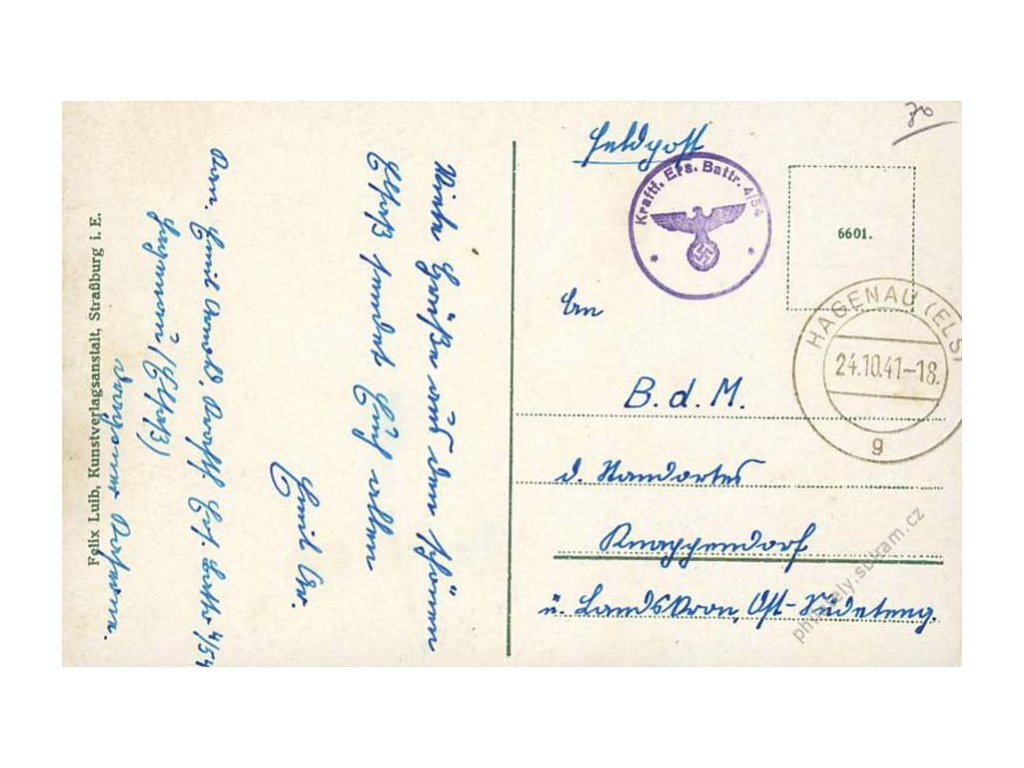 70
Feldpost
Kraftf. Ers. Battr. 4/54
6601.
HAGENAU (ELS)
24.10.41-18.
g
An
B.d.M.
d. Standortes
Knappendorf
u. Landskron, Ost-Sudeteng.
Viele Grüße aus dem schönen
Elsaß sendet Euch allen
Emil
Emil Arnold,
Hagenau (Elsaß)
Felix Luib, Kunstverlagsanstalt, Straßburg i. E.
philately.subram.cz